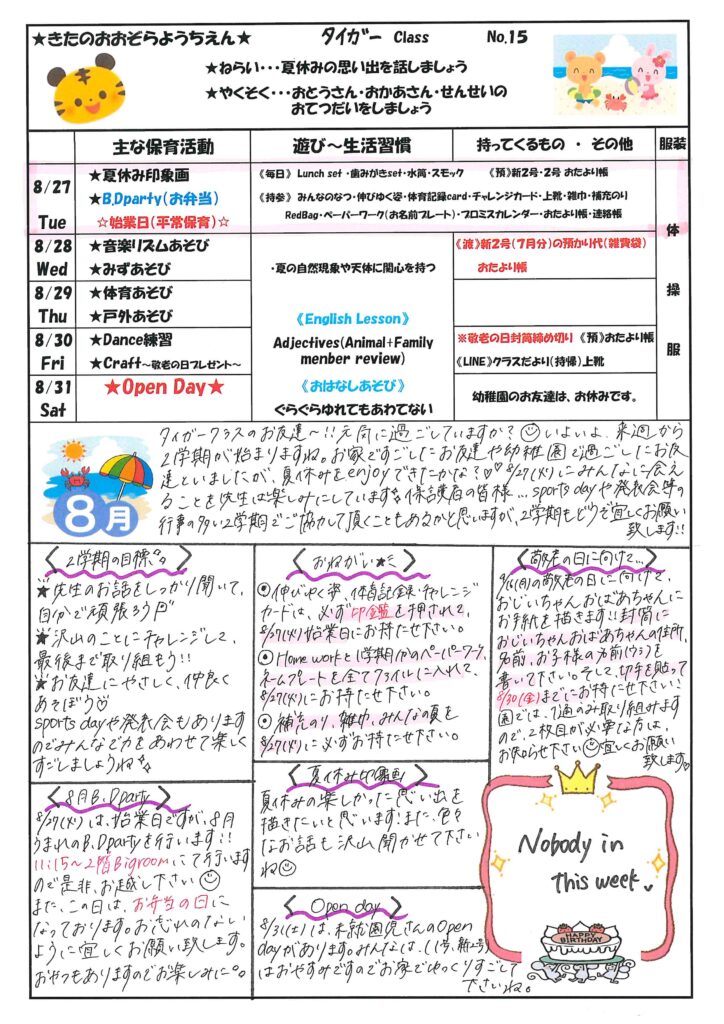 ★きたのおおぞらようちえん★ タイガー Class No.15
★ねらい・・・夏休みの思い出を話しましょう
★やくそく・・・おとうさん・おかあさん・せんせいの
おてつだいをしましょう
主な保育活動 遊び～生活習慣 持ってくるもの ・ その他 服装
8/27
Tue
★夏休み印象画
★B.Dparty(お弁当)
☆始業日(平常保育)☆
《毎日》 Lunch set ・歯みがきset・水筒・スモック 《預》新2号・2号 おたより帳
《持参》 みんなのなつ・伸びゆく姿・体育記録card・チャレンジカード・上靴・雑巾・補充のり
RedBag・ペーパーワーク(お名前プレート)・プロミスカレンダー・おたより帳・連絡帳
8/28
Wed
★音楽リズムあそび
★みずあそび
・夏の自然現象や天体に関心を持つ
《渡》新2号(7月分)の預かり代(雑貨袋)
おたより帳
8/29
Thu
★体育あそび
★戸外あそび
《English Lesson》
Adjectives(Animal+Family
menber review)
8/30
Fri
★Dance練習
★Craft～敬老の日プレゼント～
※敬老の日封筒締め切り 《預》おたより帳
《LINE》クラスだより(持帰)上靴
8/31
Sat
★Open Day★
《おはなしあそび》
ぐらぐらゆれてもあわてない
幼稚園のお友達は、お休みです。
体
操
服
8月
タイガークラスのお友達～!!元気に過ごしていますか?いよいよ、来週から
2学期が始まりますね。お家ですごしたお友達や幼稚園で過ごしたお友
達といましたが、夏休みをenjoyできたかな?♡♡8/27(火)にみんなに会え
ることを先生は楽しみにしています。保護者の皆様…sports dayや発表会等の
行事の多い2学期でご協力して頂くこともあるかと思いますが、2学期もどうぞ宜しくお願い
致します!!
〈2学期の目標〉
★先生のお話をしっかり聞いて、
自分で頑張ろう
★沢山のことにチャレンジして、
最後まで取り組もう!!
★お友達にやさしく、仲良く
あそぼう♡
sports dayや発表会もあります
のでみんなで力をあわせて楽しく
すごしましょうね
〈おねがい〉
◉伸びゆく姿、体育記録、チャレンジ
カードは、必ず印鑑を押されて、
8/27(火)始業日にお持ち下さい。
◉Home workと1学期分のペーパーワーク、
ネームプレートを全てファイルに入れて、
8/27(火)にお持ち下さい。
◉補充のり、雑巾、みんなの夏を
8/27(火)に必ずお持ち下さい。
〈敬老の日に向けて…〉
9/16(月)の敬老の日に向けて、
おじいちゃんおばあちゃんに
お手紙を描きます!!封筒に
おじいちゃんおばあちゃんの住所、
名前、お子様の名前(ウラ)を
書いて下さい。そして、切手を貼って
8/30(金)までにお持ち下さい!
園では、1通のみ取り組みます
ので、2枚目が必要な方は、
お知らせ下さい 宜しくお願い
致します♡
〈8月B.Dparty〉
8/27(火)は、始業日ですが、8月
うまれのB.Dpartyを行います!!
11:15～2階Bigroomにて行います
ので是非、お越し下さい
また、この日は、お弁当の日に
なっております。お忘れのない
ように宜しくお願い致します。
おやつもありますのでお楽しみに。
〈夏休み印象画〉
夏休みの楽しかった思い出を
描きたいと思います!また、色々
なお話も沢山聞かせて下さい
ね
〈Open day〉
8/31(土)は、未就園児さんのOpen
dayがあります。みんなは、(1号、新2号)
はおやすみですのでお家でゆっくりすごして
下さいね。
Nobody in
this week
HAPPY
BIRTHDAY